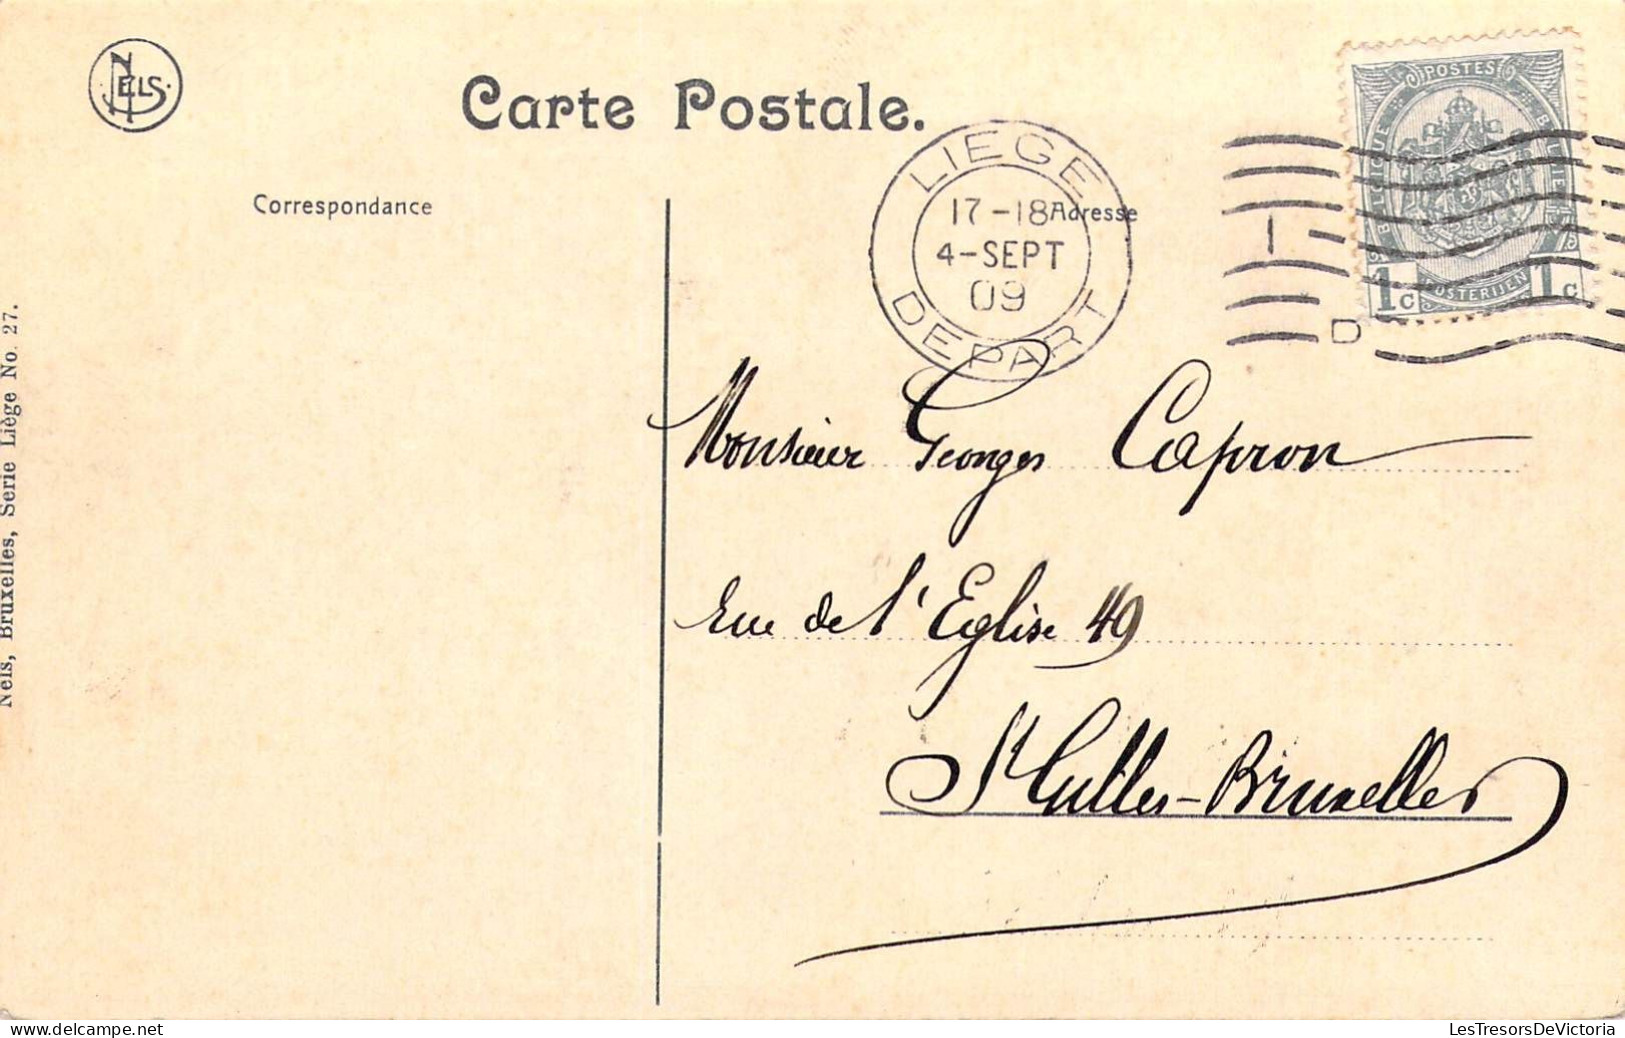 NELS.
Carte Postale.
Correspondance
Adresse
LIEGE
17-18
4-SEPT
09
DEPART
POSTES
BELGIQUE
BELGIE
POSTERIJEN
1c 1c
1
D
Monsieur Georges Capron
Rue de l'Eglise 49
St Gilles-Bruxelles
Nels, Bruxelles, Serie Liège No. 27.
delcampe.net
LesTresorsDeVictoria